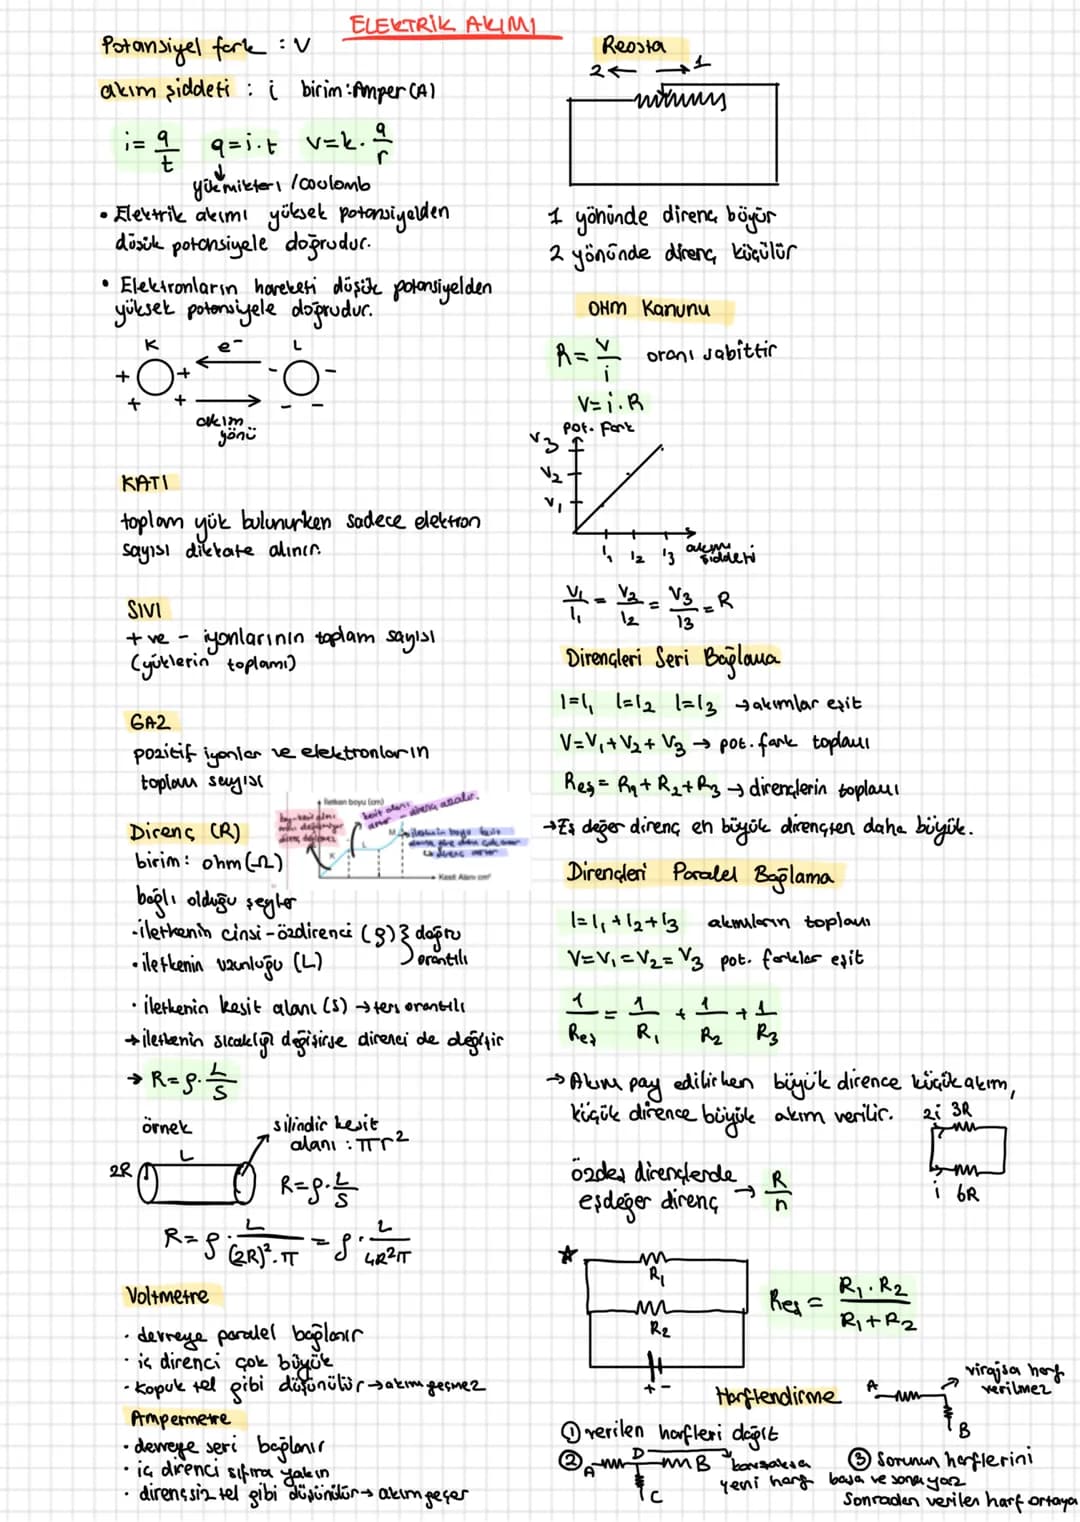 ELEKTRİK AKIMI
Potansiyel fark : V
akım şiddeti : i birim: Amper (A)
i = q/t q = i.t v = k. q/r
yük miktarı /coulomb
• Elektrik akımı yüksek potansiyelden
düşük potansiyele doğrudur.
• Elektronların hareketi düşük potansiyelden
yüksek potansiyele doğrudur.
K e- L
+ + + + - - - -
akım
yönü
KATI
toplam yük bulunurken sadece elektron
sayısı dikkate alınır.
SIVI
+ ve - iyonlarının toplam sayısı
(yüklerin toplamı)
GAZ
pozitif iyonlar ve elektronların
toplam sayısı
İletken boyu (cm)
kesit alanı
artar - direnç azalır.
M
L
K
Kesit Alanı cm²
Direnç (R)
birim: ohm (Ω)
bağlı olduğu şeyler
-iletkenin cinsi - özdirenci (ρ) } doğru
• iletkenin uzunluğu (L) orantılı
• iletkenin kesit alanı (S) → ters orantılı
→ iletkenin sıcaklığı değişirse direnci de değişir
→ R = ρ. L/S
örnek
silindir kesit
alanı : πr²
L
2R
R = ρ. L/S
R = ρ. L/(2R)².π = ρ. L/4R²π
Voltmetre
• devreye paralel bağlanır
• iç direnci çok büyük
• kopuk tel gibi düşünülür → akım geçmez
Ampermetre
• devreye seri bağlanır
• iç direnci sıfıra yakın
• dirençsiz tel gibi düşünülür → akım geçer
Reosta
2 ← → 1
1 yönünde direnç büyür
2 yönünde direnç küçülür
OHM Kanunu
R = V/i oranı sabittir
V = i.R
pot. Fark
V3
V2
V1
I1 I2 I3 akım şiddeti
V1/I1 = V2/I2 = V3/I3 = R
Dirençleri Seri Bağlama
I=I1 I=I2 I=I3 → akımlar eşit
V=V1+V2+V3 → pot. fark toplamı
Reş = R1+R2+R3 → dirençlerin toplamı
→ Eş değer direnç en büyük dirençten daha büyük.
Dirençleri Paralel Bağlama
I=I1+I2+I3 akımların toplamı
V=V1=V2=V3 pot. farklar eşit
1/Reş = 1/R1 + 1/R2 + 1/R3
→ Akım pay edilirken büyük dirence küçük akım,
küçük dirence büyük akım verilir.
2i 3R
i 6R
özdeş dirençlerde
eşdeğer direnç → R/n
R1
R2
+ -
Reş = R1.R2/R1+R2
Harflendirme
A
B
virajsa harf
verilmez
① verilen harfleri dağıt
② A D B C kavşaksa
yeni harf
③ Sorunun harflerini
başa ve sona yaz
Sonradan verilen harf ortaya